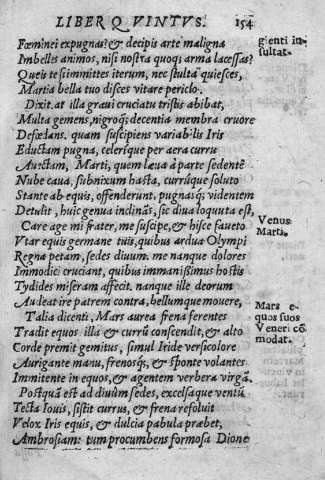 LIBER QVINTVS. 154
Fœminei expugnas? & decipis arte maligna
Imbelles animos, nisi nostra quoqꝫ arma lacessas?
Queis te si immittes iterum, nec stulta quiesces,
Martia bella tuo disces vitare periclo.
Dixit. at illa graui cruciatu tristis abibat,
Multa gemens, nigroqꝫ decentia membra cruore
Defœtans. quam suscipiens variabilis Iris
Eductam pugna, celerique per aera curru
Auectam, Marti, quem læua à parte sedentē
Nube caua, subnixum hasta, currúque soluto
Stante ab equis, offenderunt, pugnasqꝫ videntem
Detulit, huic genua inclinãs, sic diua loquuta est,
Care age mi frater, me suscipe, & hisce faueto
Vtar equis germane tuis, quibus ardua Olympi
Regna petam, sedes diuum. me nanque dolores
Immodici cruciant, quibus immanißimus hostis
Tydides miseram affecit. nanque ille deorum
Audeat ire patrem contra, bellumque mouere,
Talia dicenti, Mars aurea frena ferentes
Tradit equos illa & currū conscendit, & alto
Corde premit gemitus, simul Iride versicolore
Aurigante manu, frenosqꝫ, & sponte volantes
Immitente in equos, & agentem verbera virgã.
Postquã est ad diuûm sedes, excelsaque ventū
Tecta Iouis, sistit currus, & frena resoluit
Velox Iris equis, & dulcia pabula præbet,
Ambrosiam: tum procumbens formosa Dione
gienti in-
sultat.
Venus
Marti.
Mars e-
quos suos
Veneri cō
modat.